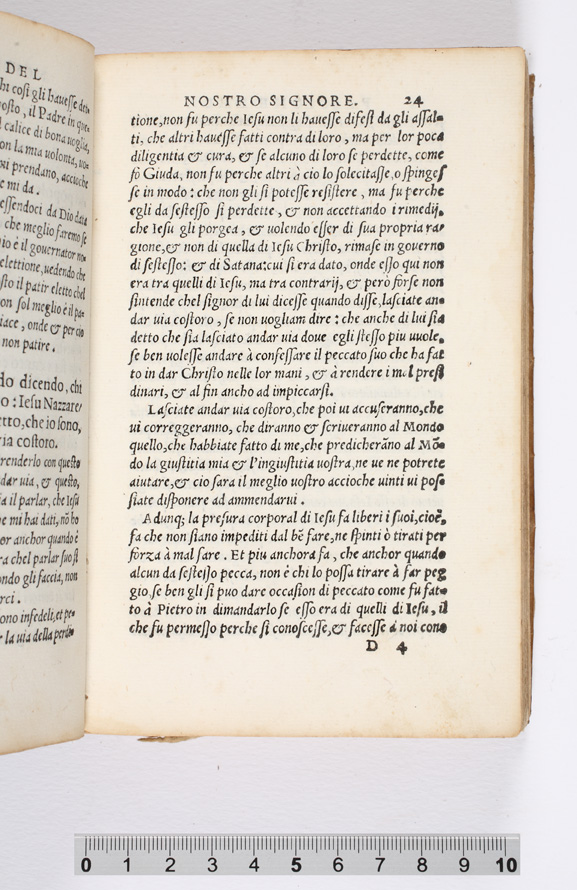 DEL
hi cosi gli havesse det-
osto, il Padre in que-
calice di bona voglia,
on la mia volonta, no-
prendano, accioche
e mi da.
essendoci da Dio data
che meglio faremo se
io è il governator no-
elettione, vedendo che
sto il patir eletto chel
on sol meglio è il pa-
iace, onde & per cio
non patire.
do dicendo, chi
o : Iesu Nazzare/
tto, che io sono,
ia costoro.
renderlo con questo
dar uia, & questo,
a il parlar, che Iesu
e mi hai dati, nõ ho
or anchor quando è
ra chel parlar suo si
ondo gli faccia, non
rci.
ono infedeli, et pe-
r la uia della perdi-
NOSTRO SIGNORE. 24
tione, non fu perche Iesu non li hauesse difesi da gli assal-
ti, che altri hauesse fatti contra di loro, ma per lor poca
diligentia & cura, & se alcuno di loro se perdette, come
fò Giuda, non fu perche altri à cio lo solecitasse, o spinges
se in modo : che non gli si potesse resistere, ma fu perche
egli da sestesso si perdette, & non accettando i rimedij,
che Iesu gli porgea, & uolendo esser di sua propria ra-
gione, & non di quella di Iesu Christo, rimase in governo
di sestesso: & di Satana: cui si era dato, onde esso qui non
era tra quelli di Iesu, ma tra contrarij, & però forse non
sintende chel signor di lui dicesse quando disse, lasciate an-
dar uia costoro, se non uogliam dire : che anche di lui sia
detto che sia lasciato andar uia dove egli stesso piu uuole,
se ben uolesse andare à confessare il peccato suo che ha fat
to in dar Christo nelle lor mani, & à rendere i mal presi
dinari, & al fin ancho ad impiccarsi.
Lasciate andar uia costoro, che poi ui accuseranno, che
ui correggeranno, che diranno & scriueranno al Mondo
quello, che habbiate fatto di me, che predicherãno al Mõ-
do la giustitia mia & l'ingiustitia uostra, ne ue ne potrete
aiutare, & cio sara il meglio uostro accioche uinti ui pos-
siate disponere ad ammendarui.
Adunq; la presura corporal di Iesu fa liberi i suoi, cioè,
fa che non siano impediti dal bẽ fare, ne spinti ò tirati per
forza à mal fare. Et piu anchora fa, che anchor quando
alcun da sestesso pecca, non è chi lo possa tirare à far peg
gio. se ben gli si puo dare occasion di peccato come fu fat-
to à Pietro in dimandarlo se esso era di quelli di Iesu, il
che fu permesso perche si conoscesse, & facesse à noi cono
D 4
0 1 2 3 4 5 6 7 8 9 10